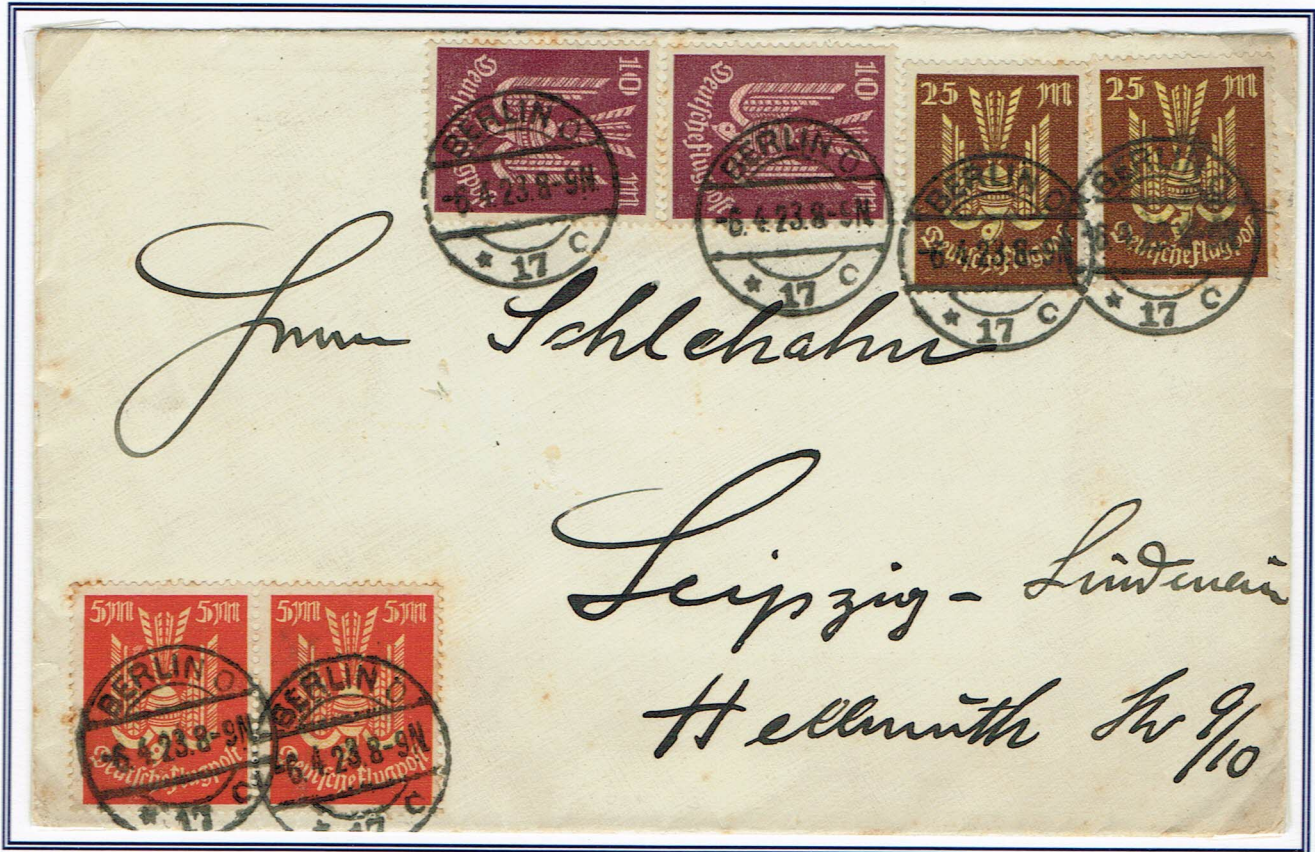 10 M
Deutsche Flugpost
10 M
Deutsche Flugpost
25 M
Deutsche Flugpost
25 M
Deutsche Flugpost
BERLIN O
-6.4.23.8-9N
* 17 c
BERLIN O
-6.4.23.8-9N
* 17 c
BERLIN O
-6.4.23.8-9N
* 17 c
BERLIN O
* 17 c
Herrn Schlehahn
Leipzig - Lindenau
Hellmuth Str 9/10
5M 5M
Deutsche Flugpost
5M 5M
Deutsche Flugpost
BERLIN O
-6.4.23.8-9N
* 17 c
BERLIN O
-6.4.23.8-9N
* 17 c